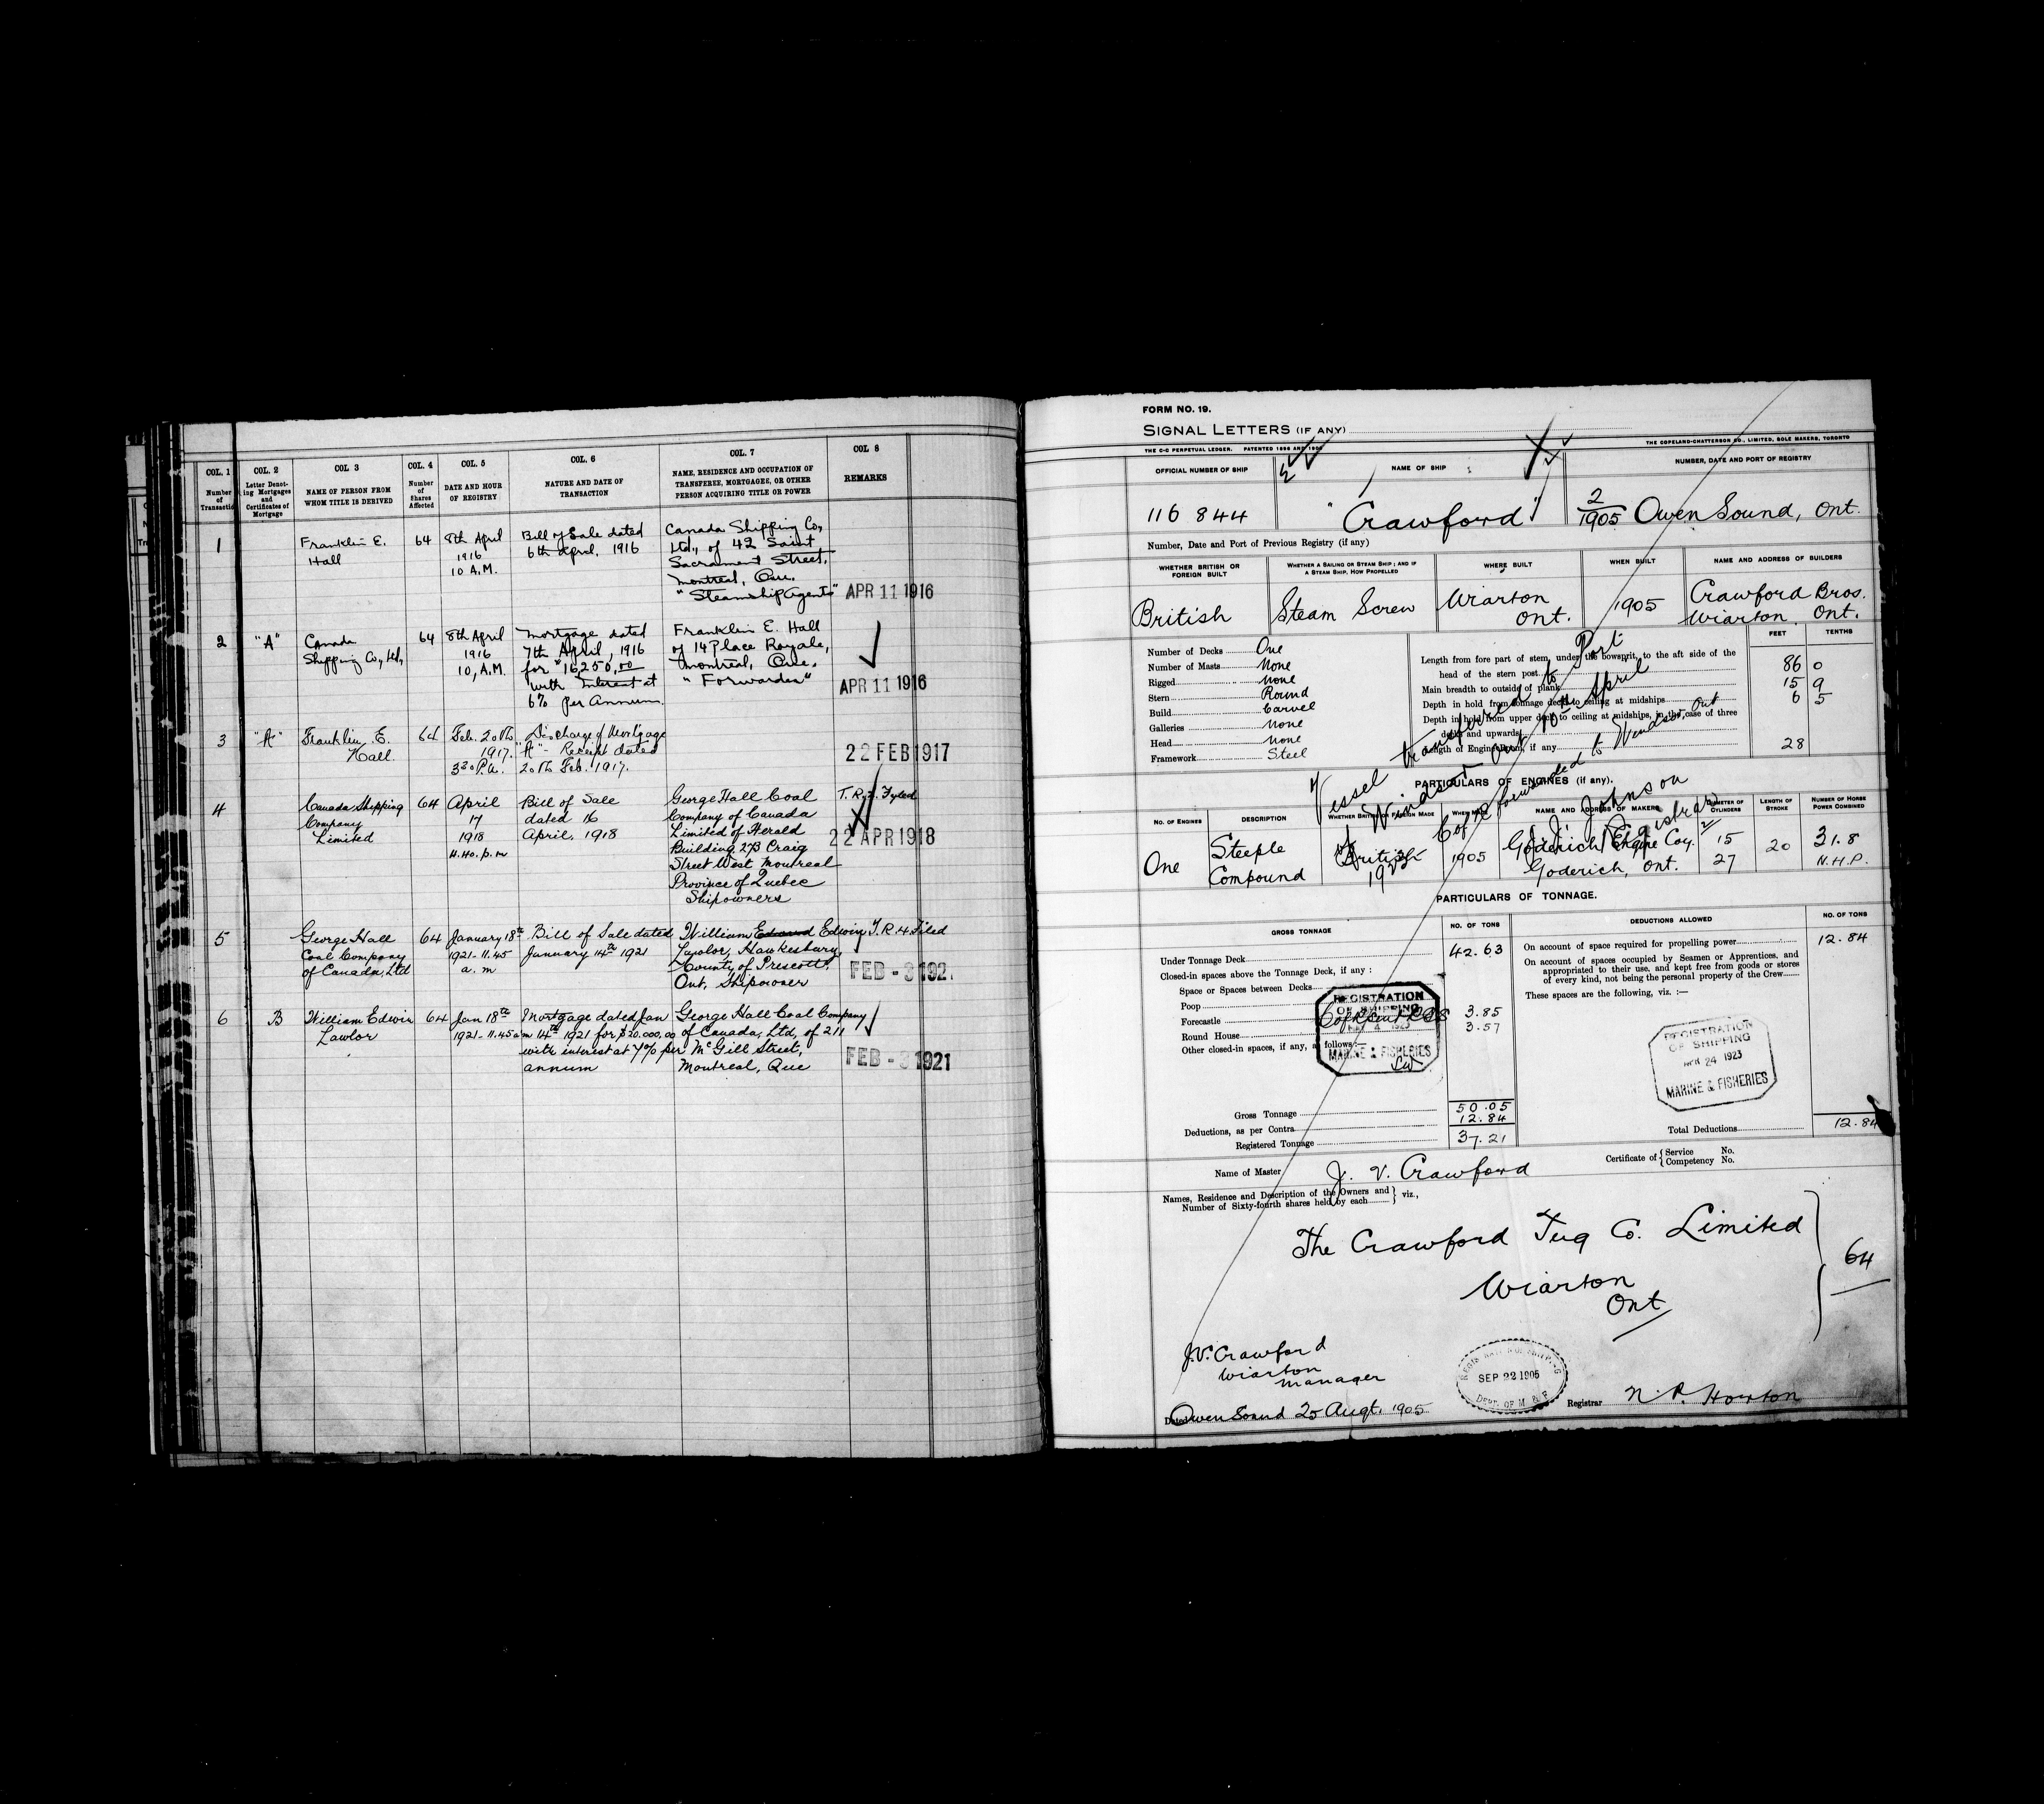 COL. 1
Number
of
Transaction
COL. 2
Letter Denot-
ing Mortgages
and
Certificates of
Mortgage
COL. 3
NAME OF PERSON FROM
WHOM TITLE IS DERIVED
COL. 4
Number
of
Shares
Affected
COL. 5
DATE AND HOUR
OF REGISTRY
COL. 6
NATURE AND DATE OF
TRANSACTION
COL. 7
NAME, RESIDENCE AND OCCUPATION OF
TRANSFEREE, MORTGAGEE, OR OTHER
PERSON ACQUIRING TITLE OR POWER
COL 8
REMARKS
1
Franklin E.
Hall
64
8th April
1916
10 A.M.
Bill of Sale dated
6th April, 1916
Canada Shipping Co,
Ltd., of 42 Saint
Sacrament Street,
Montreal, Que.
"Steamship Agents"
APR 11 1916
2
"A"
Canada
Shipping Co, Ltd,
64
8th April
1916
10, A.M.
Mortgage dated
7th April, 1916
for $16,250.00
with Interest at
6% per Annum.
Franklin E. Hall
of 14 Place Royale,
Montreal, Que.
"Forwarder"
APR 11 1916
3
"A"
Franklin E.
Hall.
64
Feb. 20th
1917.
3.30 P.M.
Discharge of Mortgage
"A" - Receipt dated
20th Feb. 1917.
22 FEB 1917
4
Canada Shipping
Company
Limited
64
April
17
1918
4.40. p.m
Bill of Sale
dated 16
April, 1918
George Hall Coal
Company of Canada
Limited of Herald
Building 273 Craig
Street West Montreal
Province of Quebec
Shipowners
T.R. Fyled
22 APR 1918
5
George Hall
Coal Company
of Canada, Ltd
64
January 18th
1921-11.45
a.m
Bill of Sale dated
January 14th 1921
William Edwin
Lawlor, Hawkesbury,
County of Prescott,
Ont, Shipowner
T.R.4 Filed
FEB - 3 1921
6
B
William Edwin
Lawlor
64
Jan 18th
1921-11.45 am
Mortgage dated Jan
14th 1921 for $20.000.00
with interest at 7% per
annum
George Hall Coal Company
of Canada, Ltd, of 211
McGill Street,
Montreal, Que
FEB - 3 1921
FORM NO. 19.
SIGNAL LETTERS (IF ANY)
THE C-C PERPETUAL LEDGER. PATENTED 1896 AND
THE COPELAND-CHATTERSON CO., LIMITED, SOLE MAKERS, TORONTO
OFFICIAL NUMBER OF SHIP
NAME OF SHIP
NUMBER, DATE AND PORT OF REGISTRY
116 844
"Crawford"
2
1905 Owen Sound, Ont.
Number, Date and Port of Previous Registry (if any)
WHETHER BRITISH OR
FOREIGN BUILT
WHETHER A SAILING OR STEAM SHIP; AND IF
A STEAM SHIP, HOW PROPELLED
WHERE BUILT
WHEN BUILT
NAME AND ADDRESS OF BUILDERS
British
Steam Screw
Wiarton
Ont.
1905
Crawford Bros.
Wiarton, Ont.
FEET
TENTHS
Number of Decks One
Number of Masts None
Rigged None
Stern Round
Build Carvel
Galleries None
Head None
Framework Steel
Length from fore part of stem, under the bowsprit, to the aft side of the
head of the stern post 86 0
Main breadth to outside of plank 15 9
Depth in hold from tonnage deck to ceiling at midships 6 5
Depth in hold from upper deck to ceiling at midships, in the case of three
decks and upwards
Length of Engine Room, if any 28
Vessel transferred to Port
of Windsor Ont 10th April
1923
Cof R forwarded to Windsor, Ont
J. J. Johnson
Registrar
PARTICULARS OF ENGINES (if any).
NO. OF ENGINES
DESCRIPTION
WHETHER BRITISH OR FOREIGN MADE
WHEN MADE
NAME AND ADDRESS OF MAKERS
DIAMETER OF
CYLINDERS
LENGTH OF
STROKE
NUMBER OF HORSE
POWER COMBINED
One
Steeple
Compound
British
1905
Goderich Engine Coy.
Goderich, Ont.
15
27
20
31.8
N.H.P.
PARTICULARS OF TONNAGE.
GROSS TONNAGE
NO. OF TONS
DEDUCTIONS ALLOWED
NO. OF TONS
Under Tonnage Deck 42.63
Closed-in spaces above the Tonnage Deck, if any :
Space or Spaces between Decks
Poop
Forecastle 3.85
Round House 3.57
Other closed-in spaces, if any, as follows :—
On account of space required for propelling power 12.84
On account of spaces occupied by Seamen or Apprentices, and
appropriated to their use, and kept free from goods or stores
of every kind, not being the personal property of the Crew
These spaces are the following, viz. :—
REGISTRATION
OF SHIPPING
4 1923
MARINE & FISHERIES
REGISTRATION
OF SHIPPING
APR 24 1923
MARINE & FISHERIES
Gross Tonnage 50.05
Deductions, as per Contra 12.84
Registered Tonnage 37.21
Total Deductions 12.84
Name of Master J. V. Crawford
Certificate of Service No.
Competency No.
Names, Residence and Description of the Owners and
Number of Sixty-fourth shares held by each viz.,
The Crawford Tug Co. Limited
Wiarton
Ont
64
J.V. Crawford
Wiarton
Manager
SEP 22 1905
DEPT. OF M & F
Dated Owen Sound 25 Augt. 1905
Registrar N. P. Horton